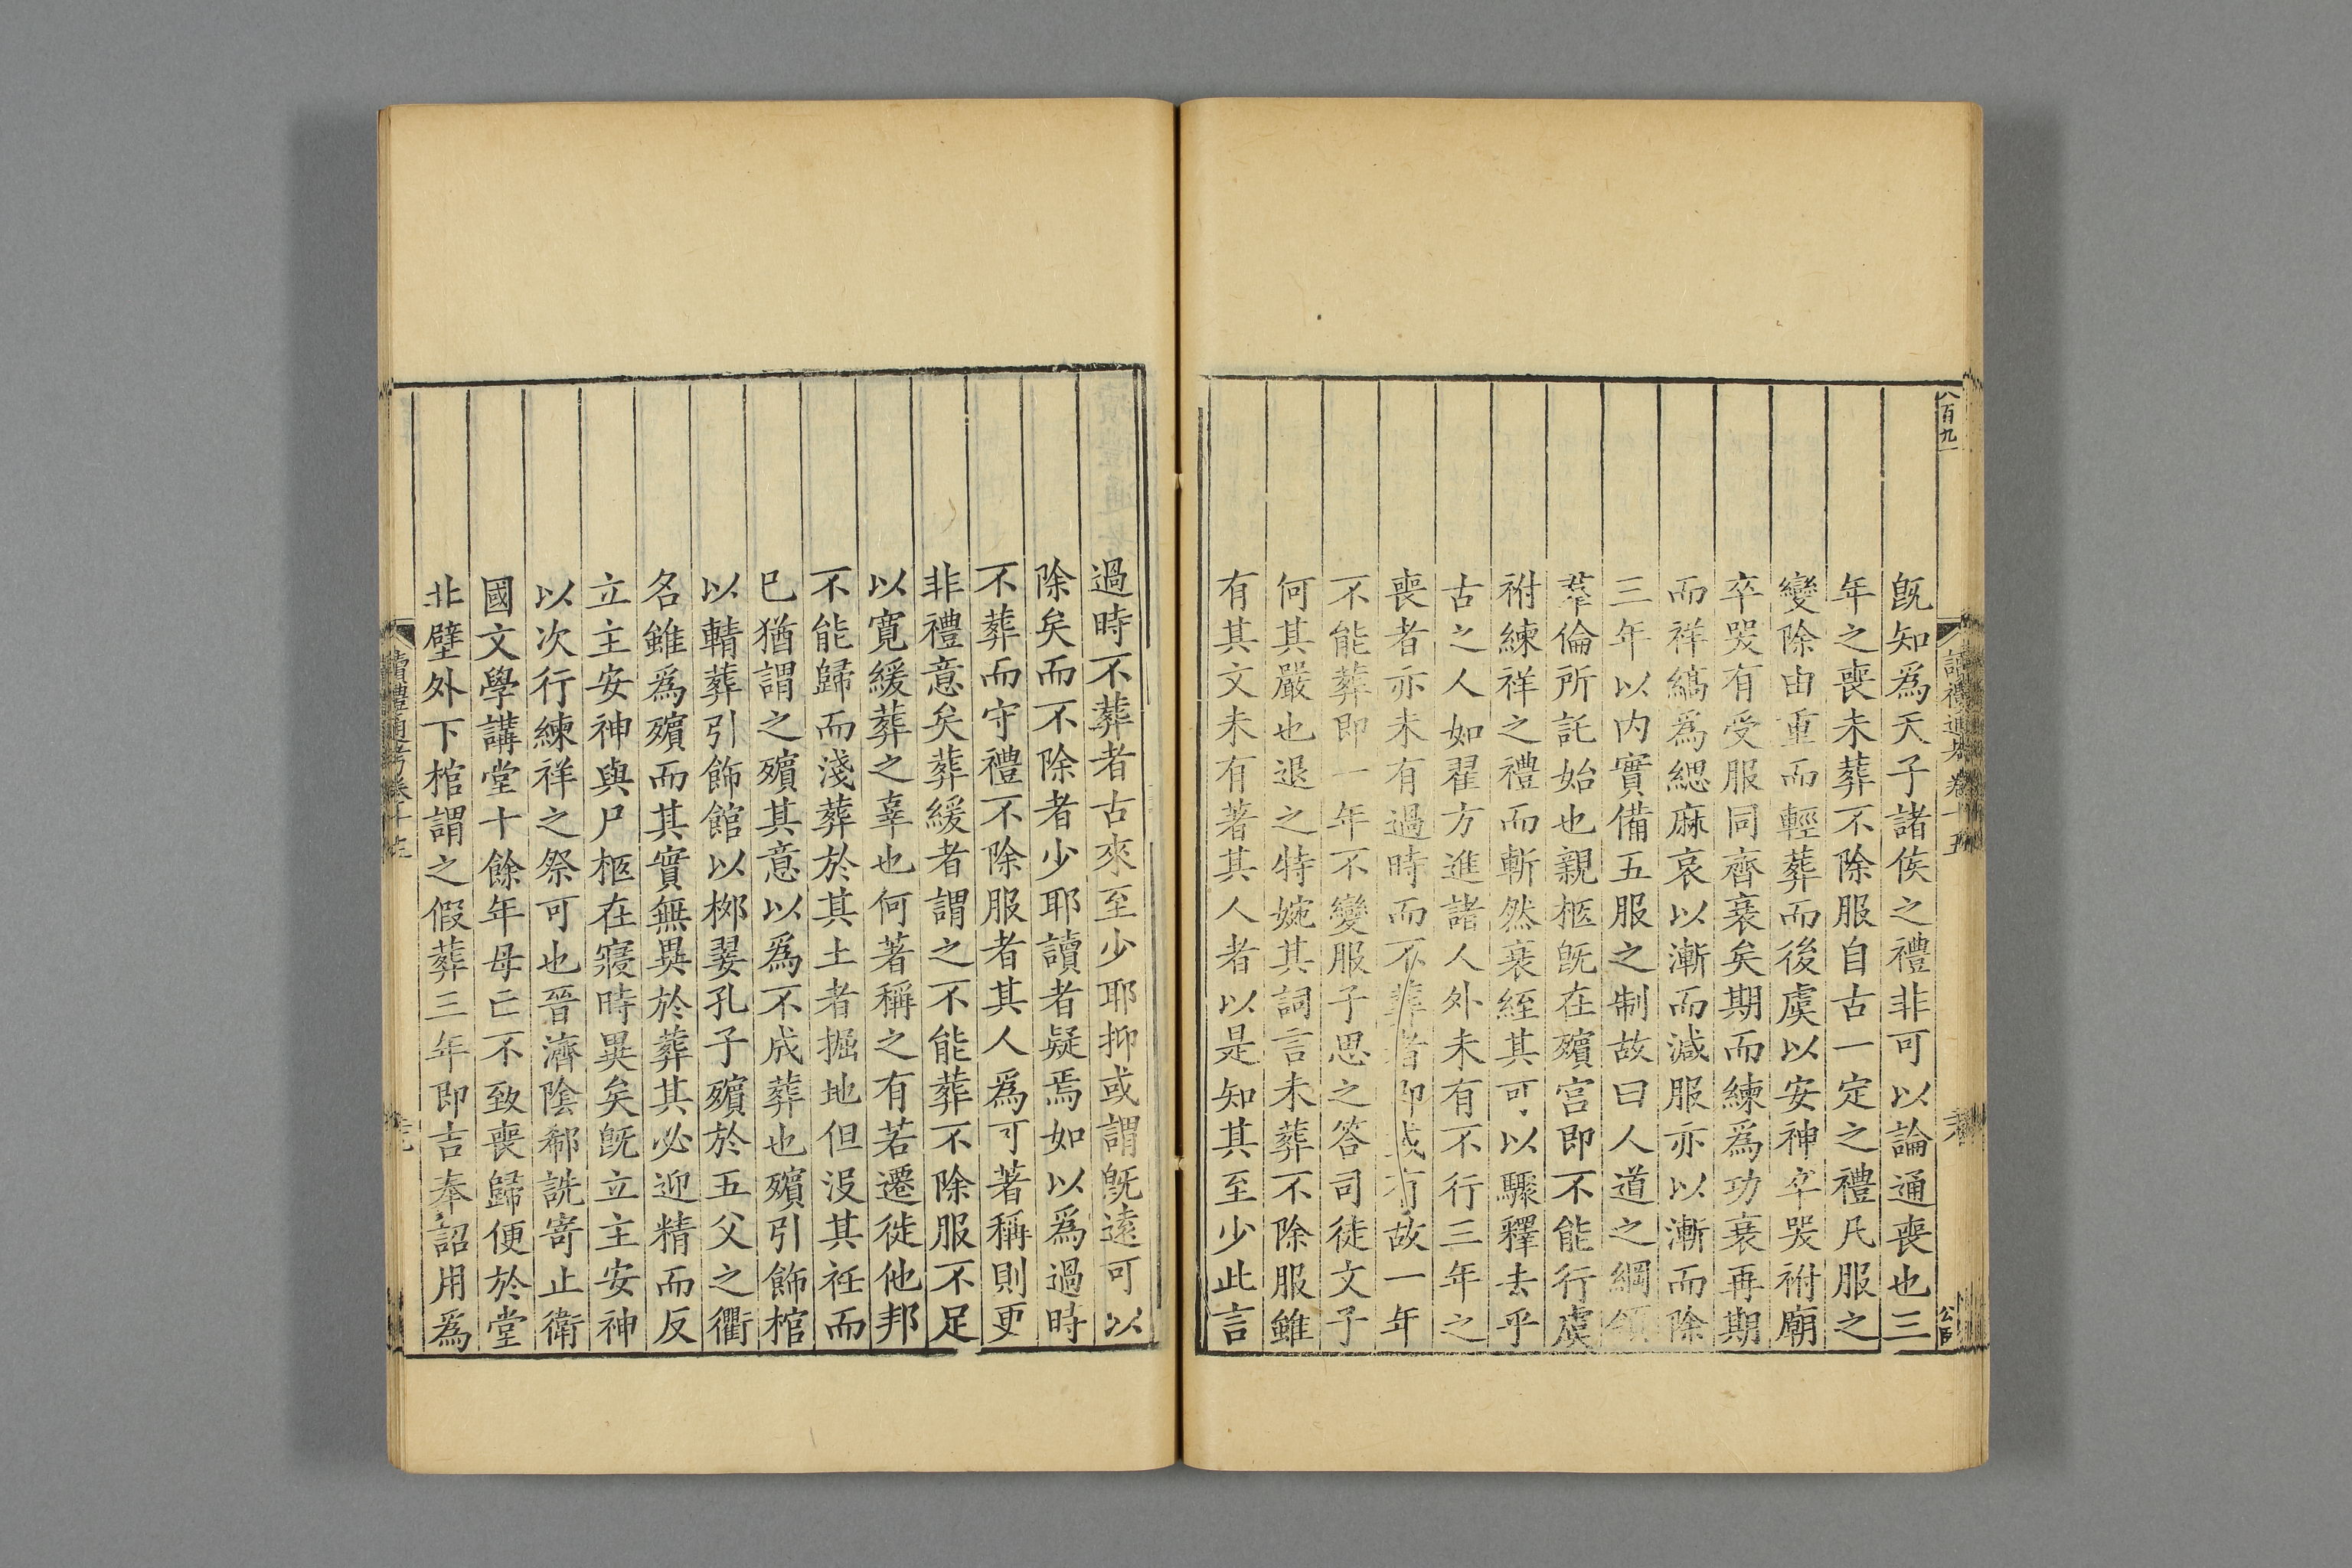 既知爲天子諸侯之禮非可以論通喪也三
年之喪未葬不除服自古一定之禮凡服之
變除由重而輕葬而後虞以安神卒哭祔廟
卒哭有受服同齊衰矣期而練爲功衰再期
而祥縞爲緦麻哀以漸而減服亦以漸而除
三年以内實備五服之制故曰人道之綱領
羣倫所託始也親柩既在殯宫即不能行虞
祔練祥之禮而斬然衰絰其可以驟釋去乎
古之人如翟方進諸人外未有不行三年之
喪者亦未有過時而不葬者即或有故一年
不能葬即一年不變服子思之答司徒文子
何其嚴也退之特婉其詞言未葬不除服雖
有其文未有著其人者以是知其至少此言
過時不葬者古來至少耶抑或謂既遠可以
除矣而不除者少耶讀者疑焉如以爲過時
不葬而守禮不除服者其人爲可著稱則更
非禮意矣葬緩者謂之不能葬不除服不足
以寬緩葬之辜也何著稱之有若遷徙他邦
不能歸而淺葬於其土者掘地但沒其衽而
巳猶謂之殯其意以爲不成葬也殯引飾棺
以輤葬引飾館以栁翣孔子殯於五父之衢
名雖爲殯而其實無異於葬其必迎精而反
立主安神與尸柩在寢時異矣既立主安神
以次行練祥之祭可也晉濟陰郗詵寄止衛
國文學講堂十餘年母亡不致喪歸便於堂
北壁外下棺謂之假葬三年即吉奉詔用爲
八百九一
讀禮通考卷十五
公臣
讀禮通考卷十五